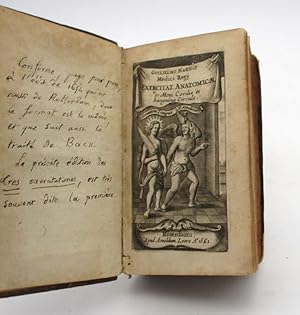 Conforme page pour page
à l'édit. de 1654 qui est
aussi de Rotterdam, dont
le format est le même
et que suit aussi le
traité de Back.
La présente édition des
tres exercitationes, est très
souvent dite la première
GUILIELMI HARVEII
Medici Regii
EXERCITAT. ANATOMICÆ
De Motu Cordis et
Sanguinis Circulat.
Roterodami
Apud Arnoldum Leers A°